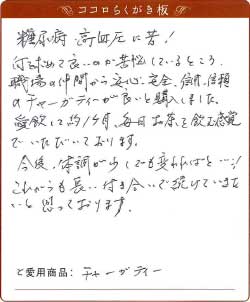 ココロらくがき板
糖尿病・高血圧に苦!
何を求めて良いのか苦悩しているところ、
職場の仲間から安心、安全、信用、信頼
のチャーガティーが良いと購入しました。
愛飲して約1ヶ月、毎日お茶を飲む感覚
でいただいております。
今後、体調が少しでも変わればと…!
これからも長い付き合いで続けていきた
いと思っております。
ご愛用商品: チャーガティー